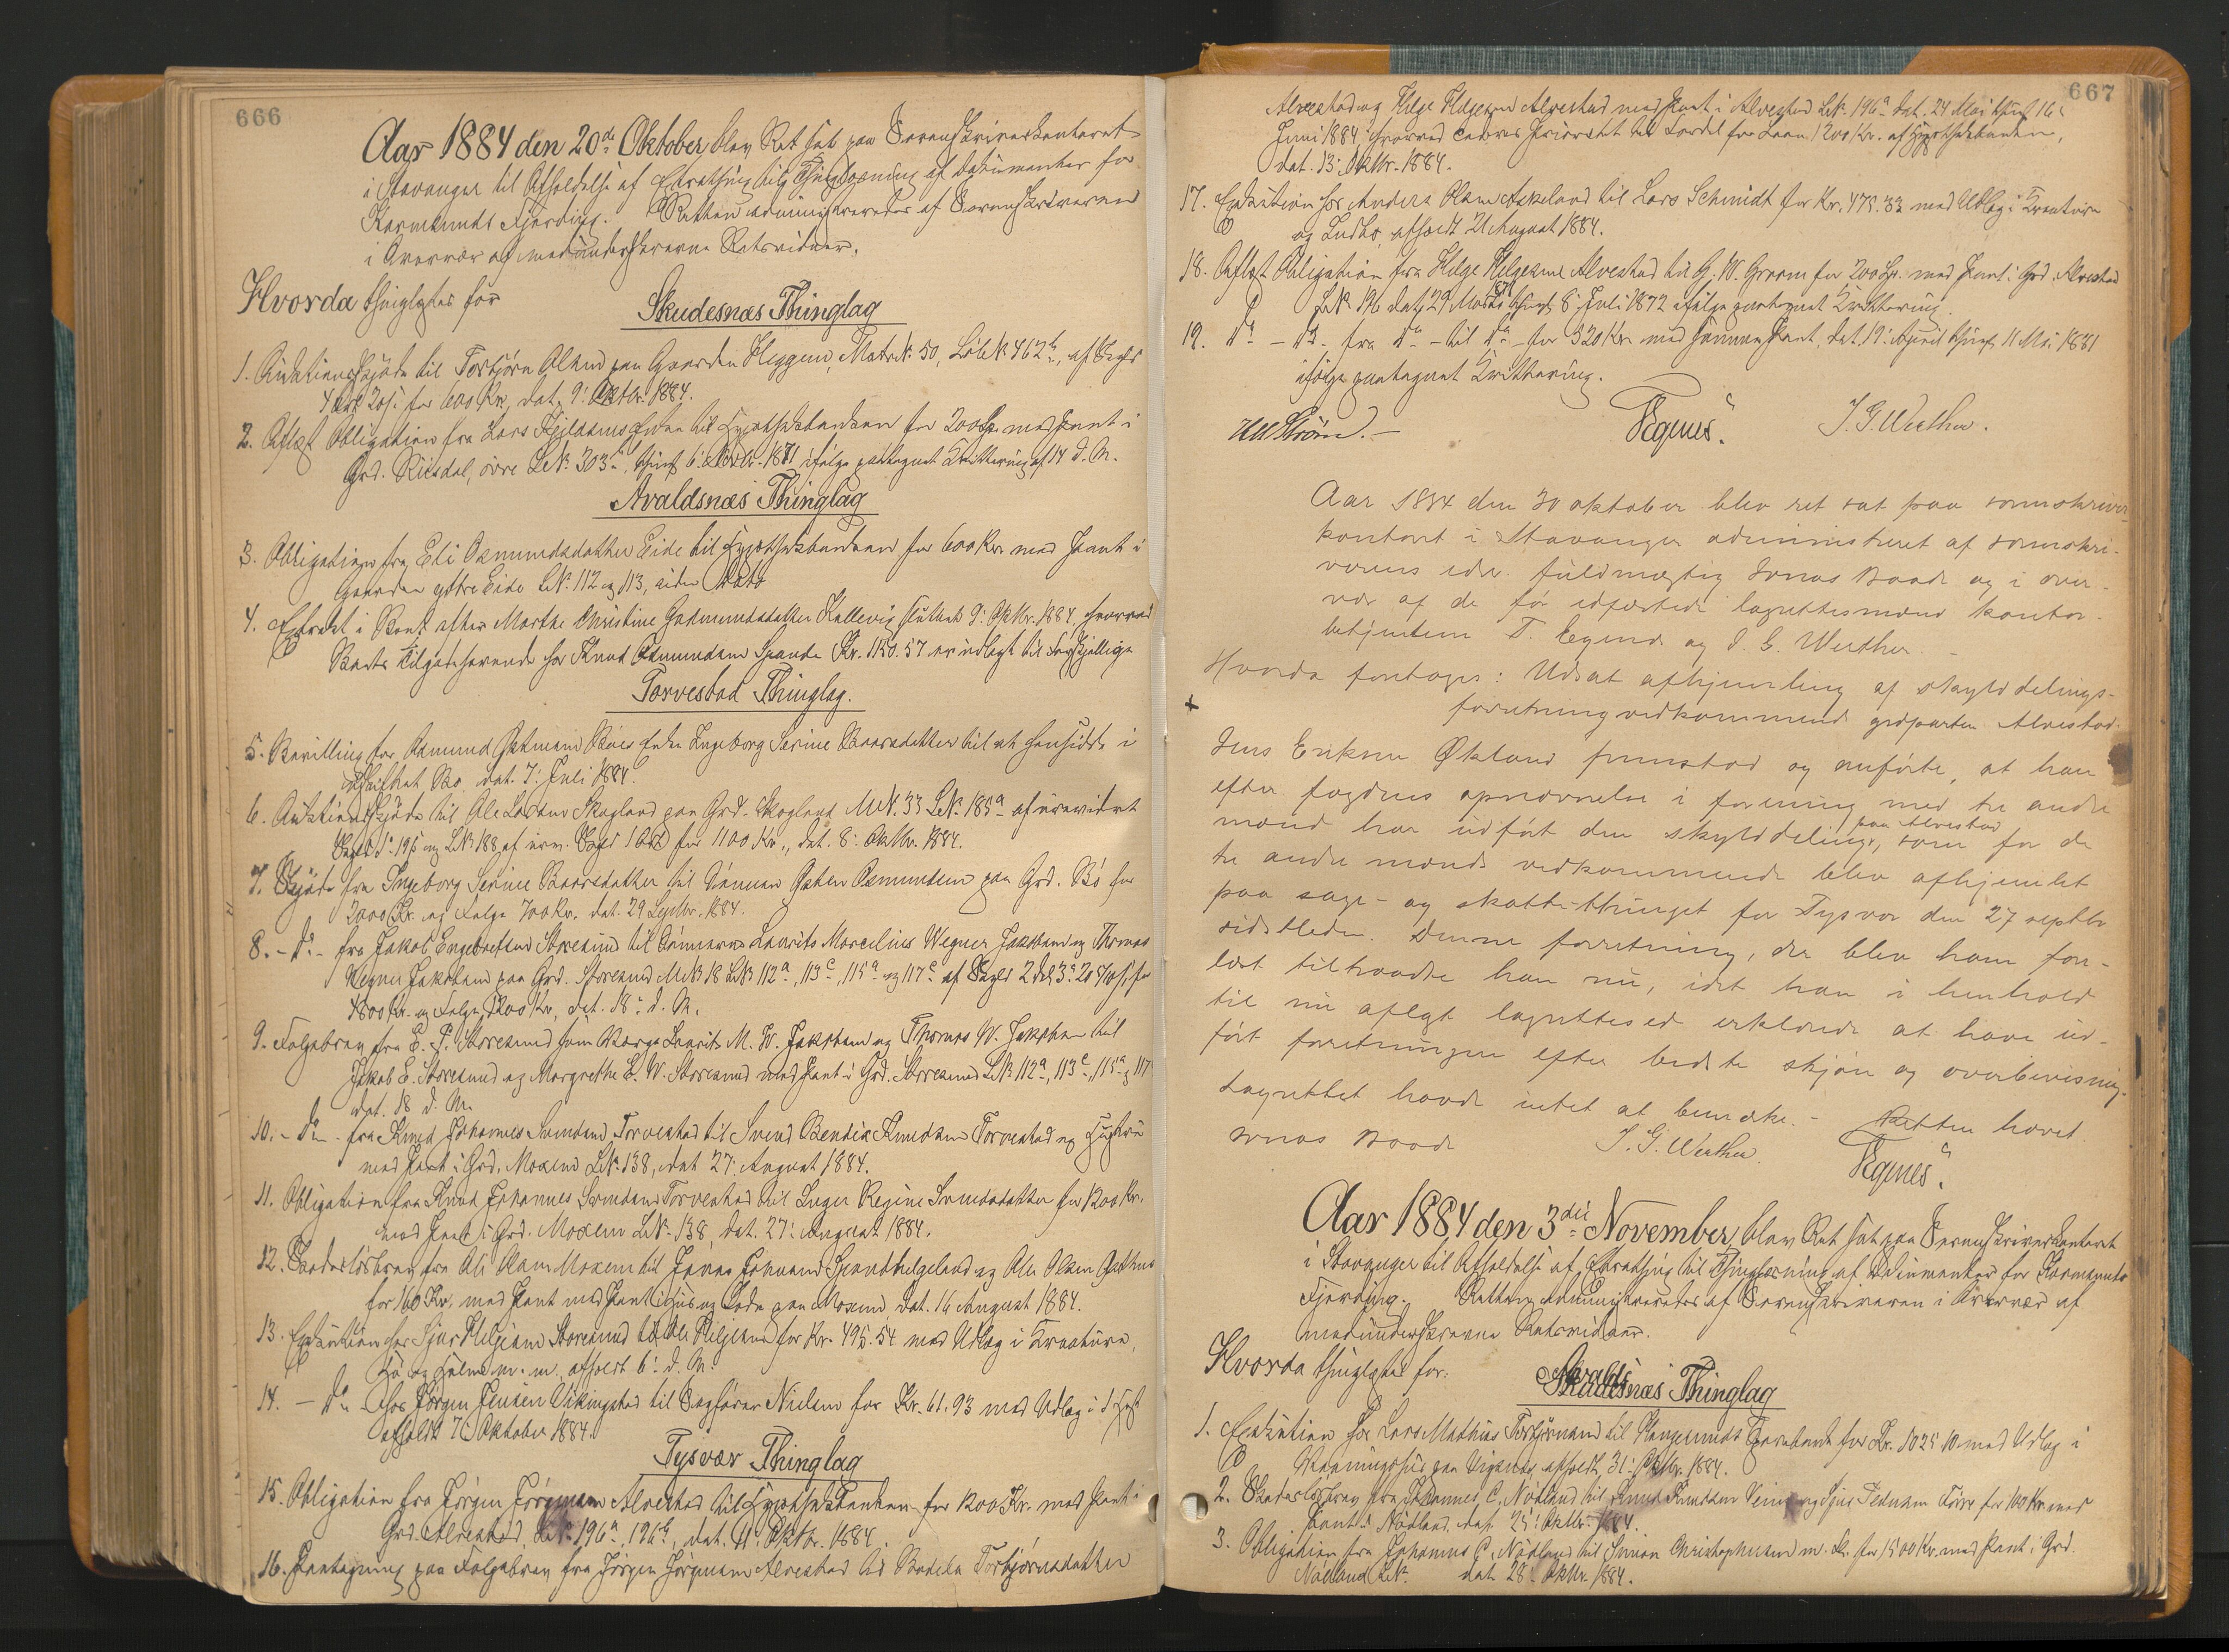 666
Aar 1884 den 20de Oktober blev Ret sat paa Sorenskriverkontoret
i Stavanger til Afholdelse af Extrathing til Thinglæsning af Dokumenter for
Karmsunds Fjerding. Retten administreredes af Sorenskriveren
i Overvær af medunderskrevne Retsvidner.
Hvorda thinglystes for
Skudesnæs Thinglag
1. Auktionsskjøde til Torbjørn Olsen paa Gaarden Heggem, Matr.N. 50, LøbeN. 462b, af Skyld
4 Ort 20 s. for 600 Kr., dat. 9: Oktbr. 1884.
2. Aflæst Obligation fra Lars Enke til Hypothekbanken for 200 Sp. med Pant i
Grd. Riisdal, øvre LN. 303, thingl. 6: 1871 ifølge paategnet Kvittering af 14 d. M.
Avaldsnæs Thinglag
3. Obligation fra Eli Osmundsdatter Eide til Hypothekbanken for 600 Kr. med Pant i
Gaarden ytre Eide LN. 112 og 113, uden Dato
4. Extrakt i Boet efter Marthe Christine Gudmundsdatter Kallevig sluttet 9: Oktbr. 1884, hvorved
Boets Tilgodehavende hos Knud Osmundsen Spande Kr. 1150.57 er udlagt til forskjellige
Torvestad Thinglag.
5. Bevilling for Asmund Østensen Bøes Enke Ingeborg Serine Baarsdatter til at hensidde i
uskiftet Bo, dat. 7: Juli 1884.
6. Auktionsskjøde til Ole Larsen Skogland paa Grd. Skogland MN. 33 LN. 185a af urevideret
Skyld og LN. 188 af urev. Skyld for 1100 Kr., dat. 8: Oktbr. 1884.
7. Skjøde fra Ingeborg Serine Baarsdatter til Sønnen Østen Osmundsen paa Grd. Bø for
2000 Kr. og Folge 700 Kr. dat. 29 Septbr. 1884.
8. - Do - fra Jakob Engebretsen Storesund til Sønnerne Laurits Marcelius Wegner Jakobsen og Thomas
Wegner Jakobsen paa Grd. Storesund MN. 18 LN. 112a, 113c, 115a og 117c af Skyld 2 for
4800 Kr. og Folge 1200 Kr., dat. 18: d. M.
9. Folgebrev fra E. J. Storesund som Værge Laurits M. W. Jakobsen og Thomas W. Jakobsen til
Jakob E. Storesund og Margrethe E. W. Storesund med Pant i Grd. Storesund LN. 112a, 113c, 115a og 117
dat. 18 d. M.
10. - Do - fra Knud Johannes Svendsen Torvestad til Svend Bendix Knudsen Torvestad og Hustru
med Pant i Grd. Moxem LN. 138, dat. 27. August 1884.
11. Obligation fra Knud Johannes Svendsen Torvestad til Inger Regine Svendsdatter for 1200 Kr.
med Pant i Grd. Moxem LN. 138, dat. 27: August 1884.
12. Skadesløsbrev fra Ole Olsen Moxem til Jonas Johansen og Ole Olsen
for 160 Kr. med Pant med Pant i Hus og Lade paa Moxem, dat. 16 August 1884.
13. Exekution hos Sjur Helgesen Storesund til Ole for Kr. 495.54 med Udlæg i Kreature,
Hø og Halm m. m., afholdt 6: d. M.
14. - Do - hos Jørgen Jensen Vikingstad til Sagfører Nielsen for Kr. 61.93 med Udlæg i 1 Hest
afholdt 7: Oktober 1884.
Tysvær Thinglag
15. Obligation fra Jørgen Jørgensen Alvestad til Hypothekbanken for 1200 Kr. med Pant i
Grd. Alvestad, LN. 196a, 196b, dat. 11: Oktbr. 1884.
16. Paategning paa Folgebrev fra Jørgen Jørgensen Alvestad til Torbjørnsdatter
667
Alvestad og Helge Helgesen Alvestad med Pant i Alvestad LN. 196a dat. 24 Mai thingl. 16:
Juni 1884, hvorved cederes Prioritet til Fordel for Laan 1200 Kr. af Hypothekbanken,
dat. 13: Oktbr. 1884.
17. Exekution hos Anders Olsen Askeland til Lars Schmidt for Kr. 475.33 med Udlæg i Kreature
og Indbo, afholdt 21 August 1884.
18. Aflæst Obligation fra Helge Helgesen Alvestad til G. W. Groom for 200 Sp. med Pant i Grd. Alvestad
LN. 196 dat. 29 thingl. 8: Juli 1872 ifølge paategnet Kvittering.
19. Do - Do - fra Do - til Do - for 320 Kr. med samme Pant, dat. 19: April thingl. 11 Mai 1881
ifølge paategnet Kvittering.
Strøm.-
T. Egenes.
J. G. Werther.
Aar 1884 den 30 oktober blev ret sat paa sornskriver-
kontoret i Stavanger administreret af sornskri-
verens eds. fuldmægtig Jonas Baade og i over-
vær af de før edfæstede lagrettesmænd kontor-
betjentene T. Egenes og J. G. Werther. -
Hvorda foretoges: Udsat afhjemling af skylddelings-
forretning vedkommende grdparten Alvestad.
Jens Eriksen Økland fremstod og anførte, at han
efter fogdens opnævnelse i forening med tre andre
mænd har udført den skylddeling paa Alvestad, som for de
tre andre mænds vedkommende blev afhjemlet
paa sage- og skatte-thinget for Tysvær den 27 septbr
sidstleden. Denne forretning, der blev ham fore-
læst tiltraadte han nu, idet han i henhold
til nu aflagt lagrettesed erklærede at have ud-
ført forretningen efter bedste skjøn og overbevisning.
Lagrettet havde intet at bemærke. - Retten hævet.
Jonas Baade
J. G. Werther.
T. Egenes.
Aar 1884 den 3die November blev Ret sat paa Sorenskriverkontoret
i Stavanger til Afholdelse af Extrathing til Thinglæsning af Dokumenter for Karmsunds
Fjerding. Retten administreredes af Sorenskriveren i Overvær af
medunderskrevne Retsvidner.
Hvorda thinglystes for:
Avaldsnæs Thinglag
1. Exekution hos Lars Mathias Torbjørnsen til Haugesunds Sparebank for Kr. 1025.10 med Udlæg i
Vaaningshus paa, afholdt 31: Oktbr. 1884.
2. Skadesløsbrev fra Johannes C. Nødland til Knud Knudsen og Sjur for 100 Kr. med
Pant i Nødland, dat. 25: Oktbr. 1884.
3. Obligation fra Johannes C. Nødland til Simon Christophersen m. fl. for 1500 Kr. med Pant i Grd.
Nødland LN. dat. 28: Oktbr. 1884.